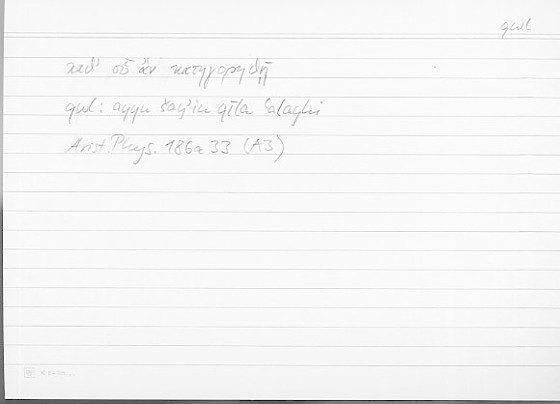 qwl
καθ' οὗ ἂν κατηγορηθῇ
qwl: ayyu šayʾin qīla ʿalayhi
Arist. Phys. 186a 33 (A3)